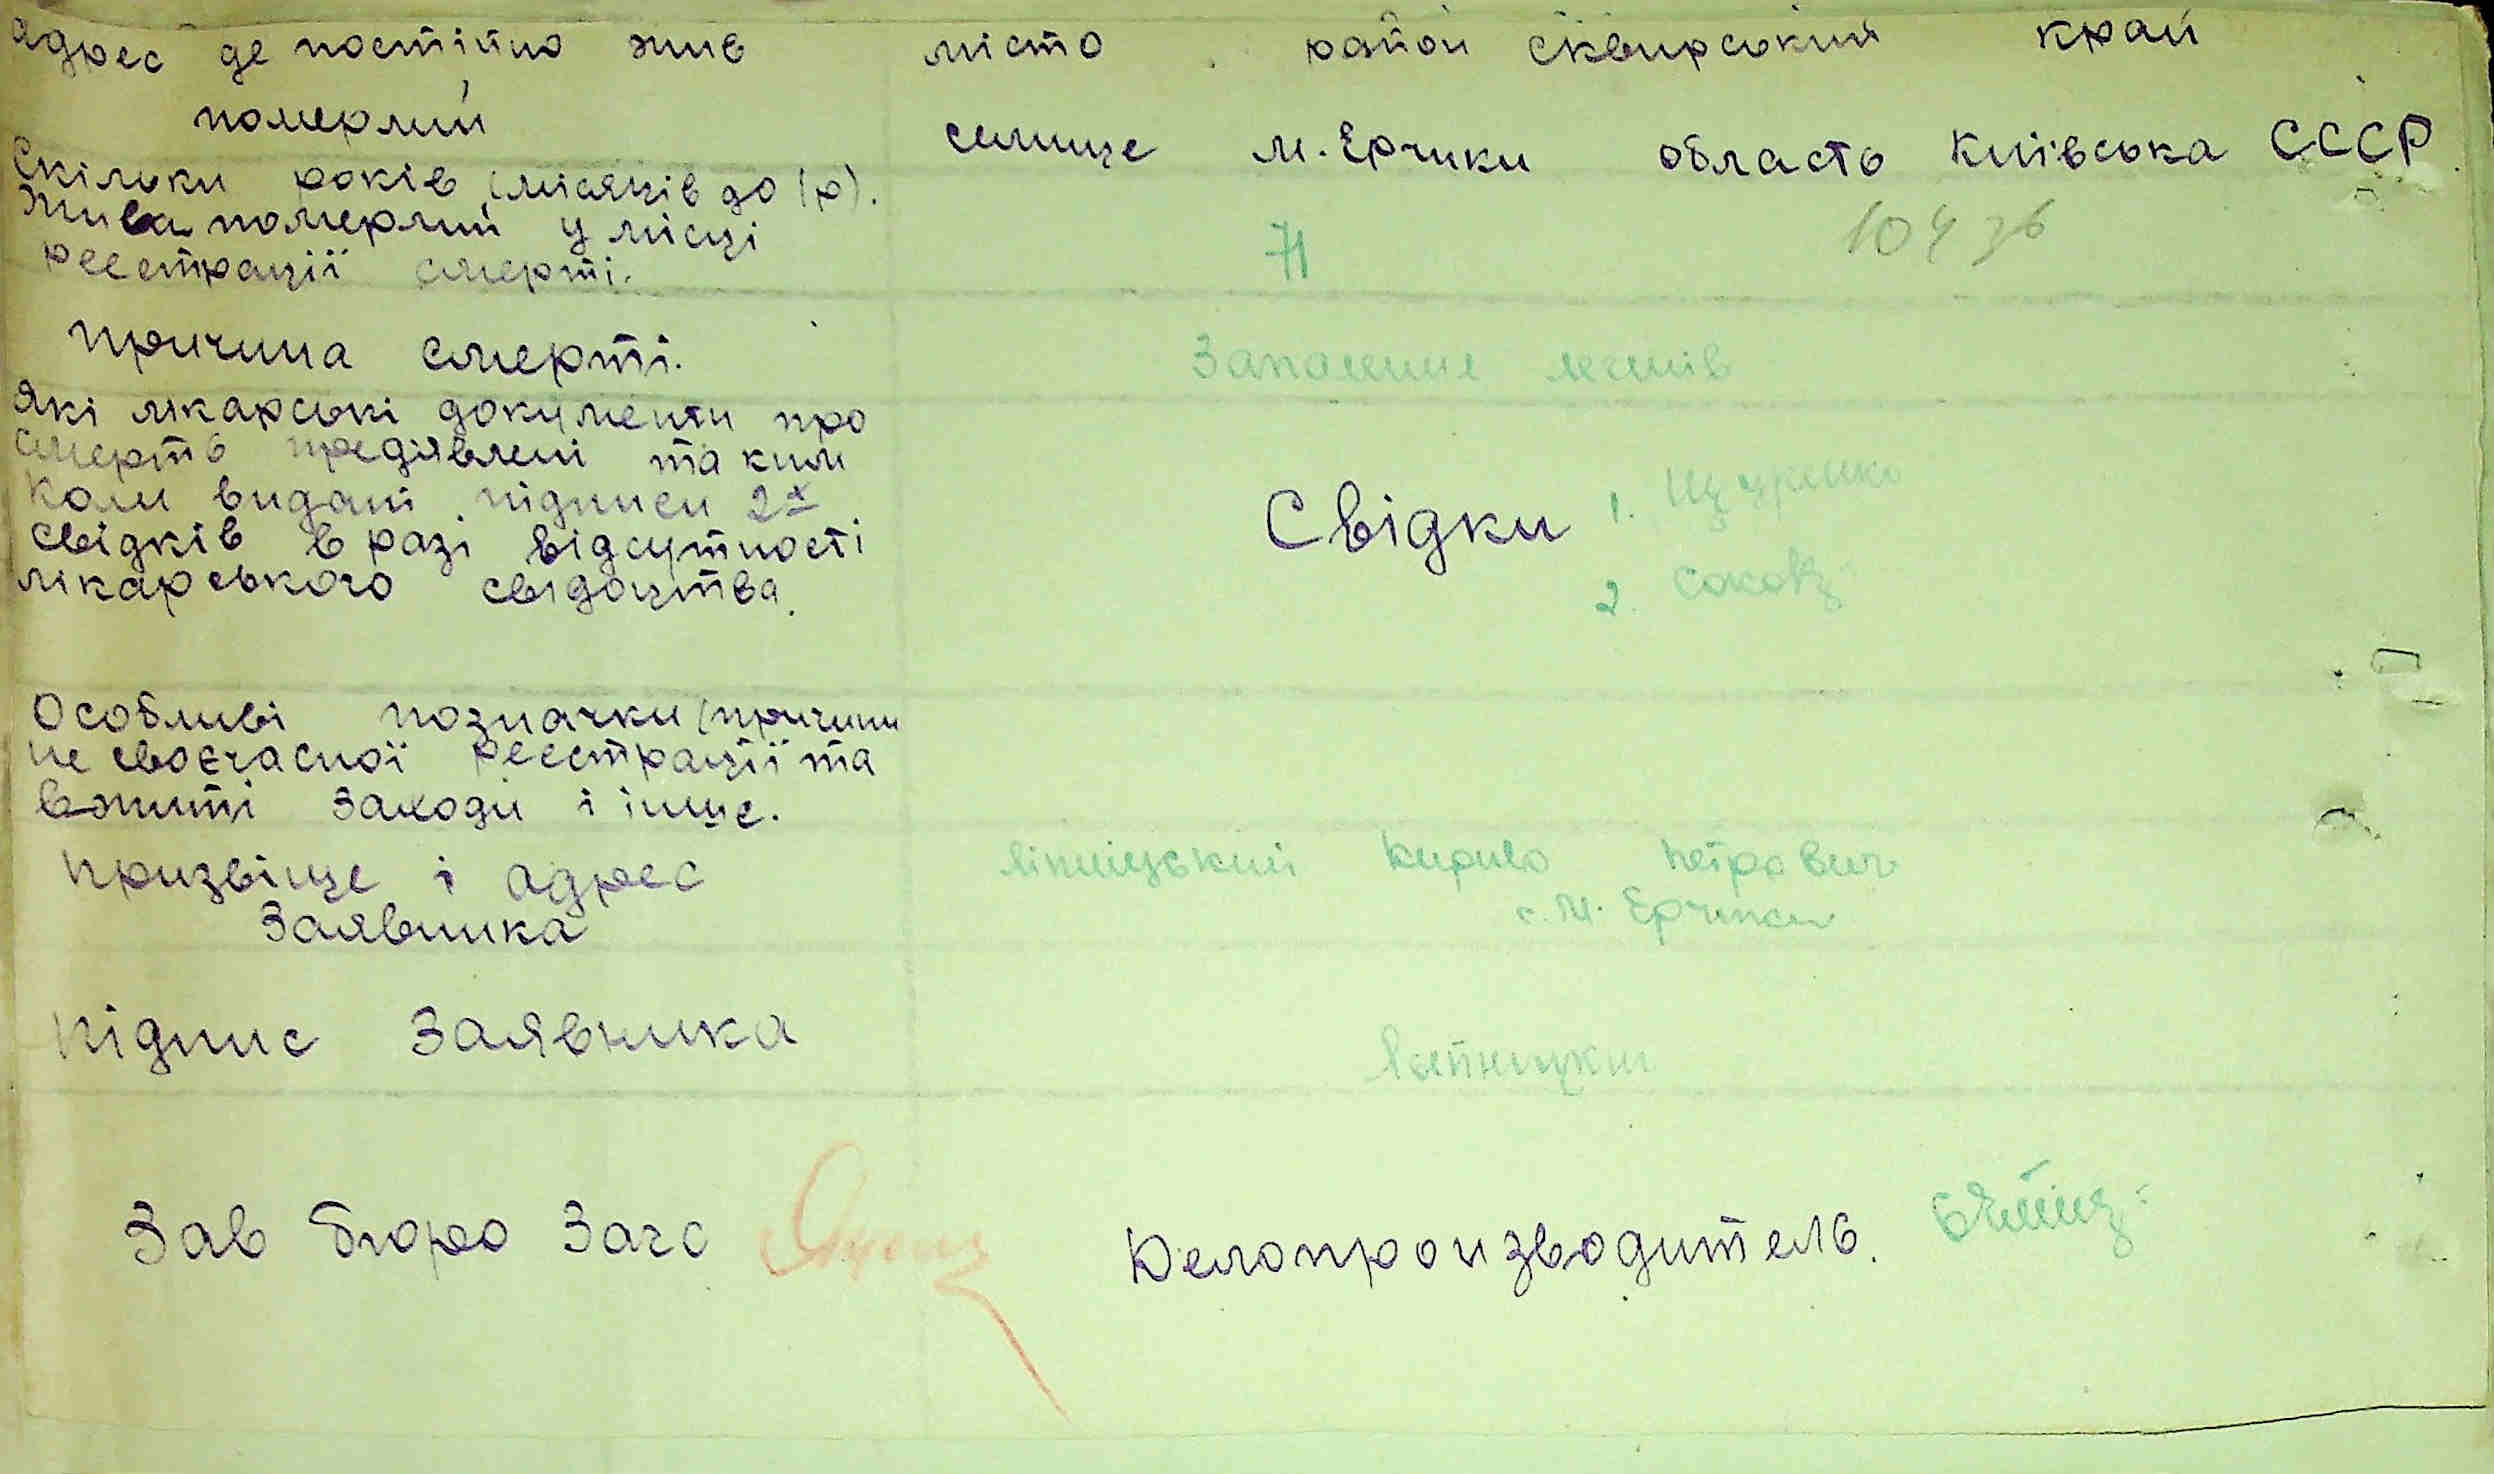 Адрес де постійно жив місто район Сквирський край
померлий
селище М. Єрчики область Київська СССР
Скільки років (місяців до 1 р).
жива померлий у місці
реєстрації смерті.
71
104 зв
Причина смерті.
Запаленнє легенів
Які лікарські документи про
смерть предіявлені та ким
коли видані підписи 2х
свідків в разі відсутності
лікарського свідоцтва.
Свідки 1.
2.
Особливі позначки (причини
не своєчасної реєстрації та
вжиті заходи і інше.
Призвіще і адрес
Заявника
Ліпніцький Кирило Петрович
с. М. Єрчики
Підпис Заявника
Зав бюро Загс
Делопроизводитель.